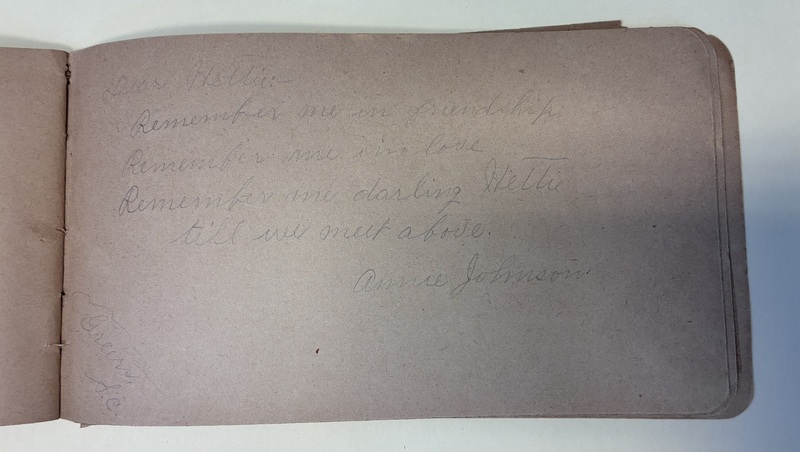 Dear Hettie:-
Remember me in friendship
Remember me in love
Remember me darling Hettie
till we meet above.
Annie Johnson.
Greer,
S.C.